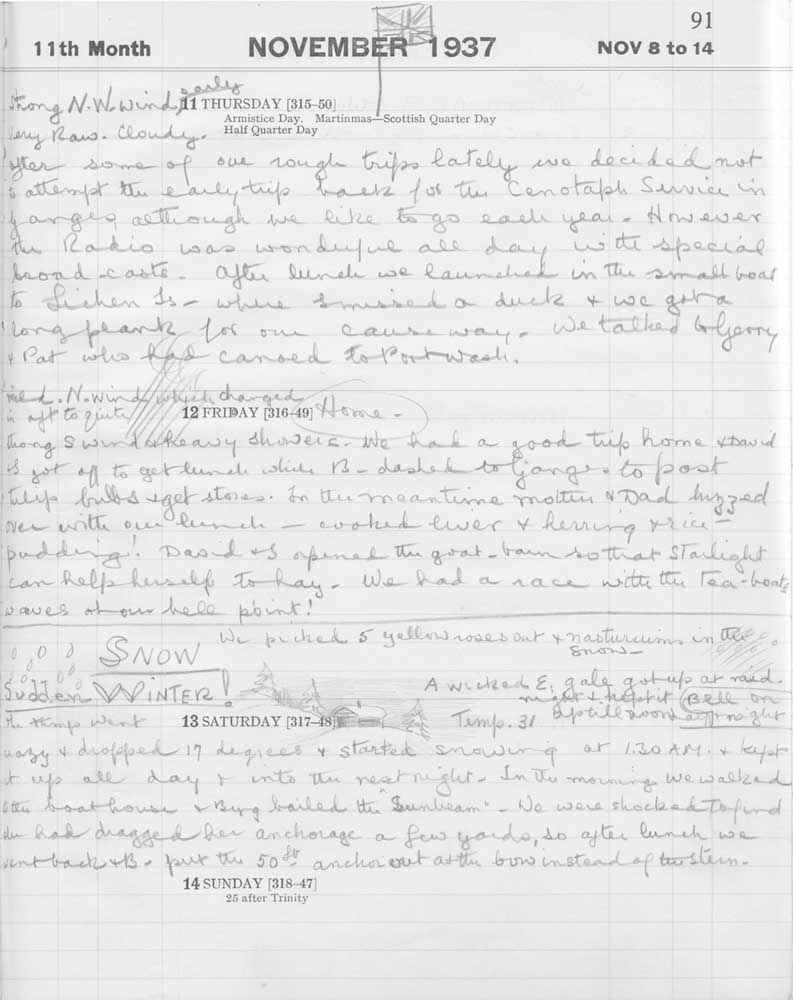 91
11th Month NOVEMBER 1937 NOV 8 to 14
Strong N.W. wind, early 11 THURSDAY [315–50]
Armistice Day. Martinmas—Scottish Quarter Day
Very Raw. Cloudy. Half Quarter Day
After some of our rough trips lately we decided not
to attempt the early trip back for the Cenotaph Service in
Ganges, although we like to go each year. However
the Radio was wonderful all day with special
broad-casts. After lunch we launched in the small boat
to Lichen Is – where I missed a duck & we got a
long plank for our causeway. We talked to Gerry
& Pat who had canoed to Port Wash.
mild. N. Wind which changed
in aft to quite 12 FRIDAY [316–49] Home –
strong S wind & heavy showers. We had a good trip home & David
& I got off to get lunch while B – dashed to Ganges to post
tulip bulbs & get stores. In the meantime mother & Dad buzzed
over with our lunch – cooked liver & herring & rice –
pudding! David & I opened the goat-barn so that Starlight
can help herself to hay. We had a race with the Tea-boats
waves at our bell point!
We picked 5 yellow roses out & nasturciums in the
snow –
SNOW
Sudden WINTER!
A wicked E. gale got up at mid-
night & kept it up till noon
Bell on all night
the temp went 13 SATURDAY [317–48] Temp. 31
crazy & dropped 17 degrees & started snowing at 1.30 A.M. & kept
it up all day & into the next night – In the morning we walked
to the boathouse & Byrg bailed the "Sunbeam" – We were shocked to find
she had dragged her anchorage a few yards, so after lunch we
went back & B – put the 50 lb anchor out at the bow instead of the stern.
14 SUNDAY [318–47]
25 after Trinity